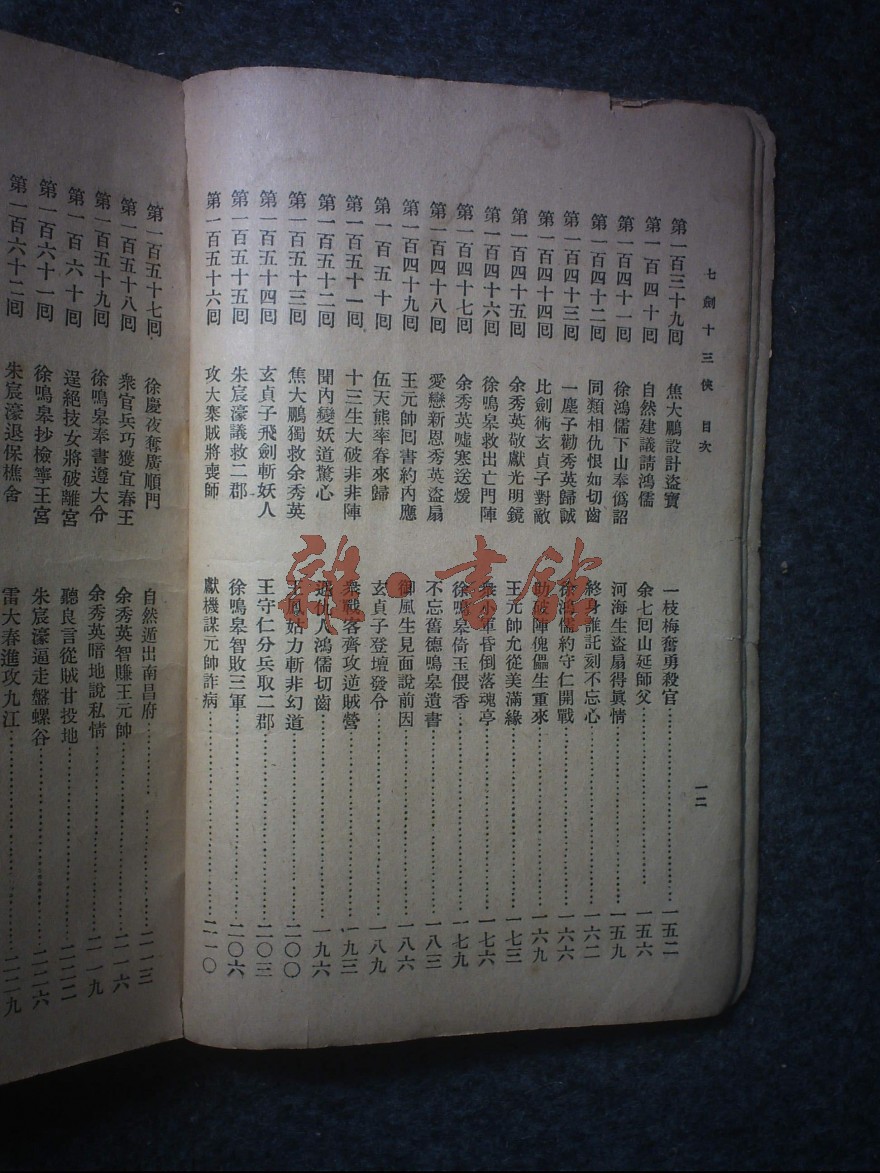 七劍十三俠 目次
一二
第一百三十九囘 焦大鵬設計盜寶 一枝梅奮勇殺官 一五二
第一百四十囘 自然建議請鴻儒 余七囘山延師父 一五六
第一百四十一囘 徐鴻儒下山奉僞詔 河海生盜扇得眞情 一五九
第一百四十二囘 同類相仇恨如切齒 終身誰託刻不忘心 一六二
第一百四十三囘 一塵子勸秀英歸誠 徐鴻儒約守仁開戰 一六六
第一百四十四囘 比劍術玄貞子對敵 助破陣傀儡生重來 一六九
第一百四十五囘 余秀英敬獻光明鏡 王元帥允從美滿緣 一七三
第一百四十六囘 徐鳴皋救出亡門陣 衆小軍昏倒落魂亭 一七六
第一百四十七囘 余秀英噓寒送煖 徐鳴皋倚玉偎香 一七九
第一百四十八囘 愛戀新恩秀英盜扇 不忘舊德鳴皋遺書 一八三
第一百四十九囘 王元帥囘書約內應 御風生見面說前因 一八六
第一百五十囘 伍天熊率眷來歸 玄貞子登壇發令 一八九
第一百五十一囘 十三生大破非非陣 衆戰客齊攻逆賊營 一九三
第一百五十二囘 聞內變妖道驚心 遇仇人鴻儒切齒 一九六
第一百五十三囘 焦大鵬獨救余秀英 王鳳姑力斬非幻道 二〇〇
第一百五十四囘 玄貞子飛劍斬妖人 王守仁分兵取二郡 二〇三
第一百五十五囘 朱宸濠議救二郡 徐鳴皋智敗三軍 二〇六
第一百五十六囘 攻大寨賊將喪師 獻機謀元帥詐病 二一〇
第一百五十七囘 徐慶夜奪廣順門 自然遁出南昌府 二一三
第一百五十八囘 衆官兵巧獲宜春王 余秀英智賺王元帥 二一六
第一百五十九囘 徐鳴皋奉書遵大令 余秀英暗地說私情 二一九
第一百六十囘 逞絕技女將破離宮 聽良言從賊甘投地 二二二
第一百六十一囘 徐鳴皋抄檢寧王宮 朱宸濠逼走盤螺谷 二二六
第一百六十二囘 朱宸濠退保樵舍 雷大春進攻九江 二二九